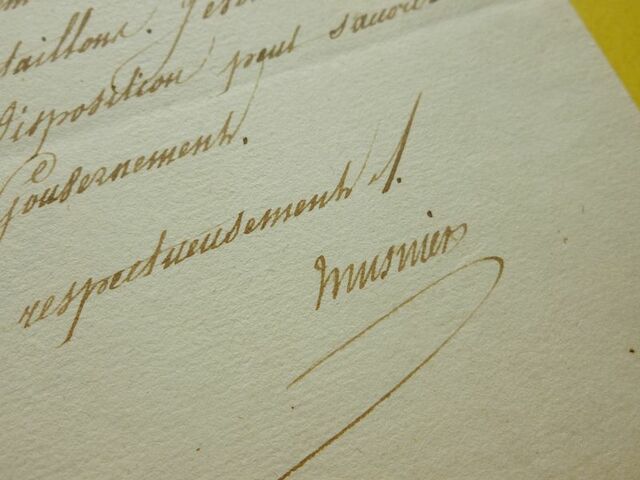 taillons. Jes
disposition peut s'accor
Gouvernement.
respectueusement
musnier